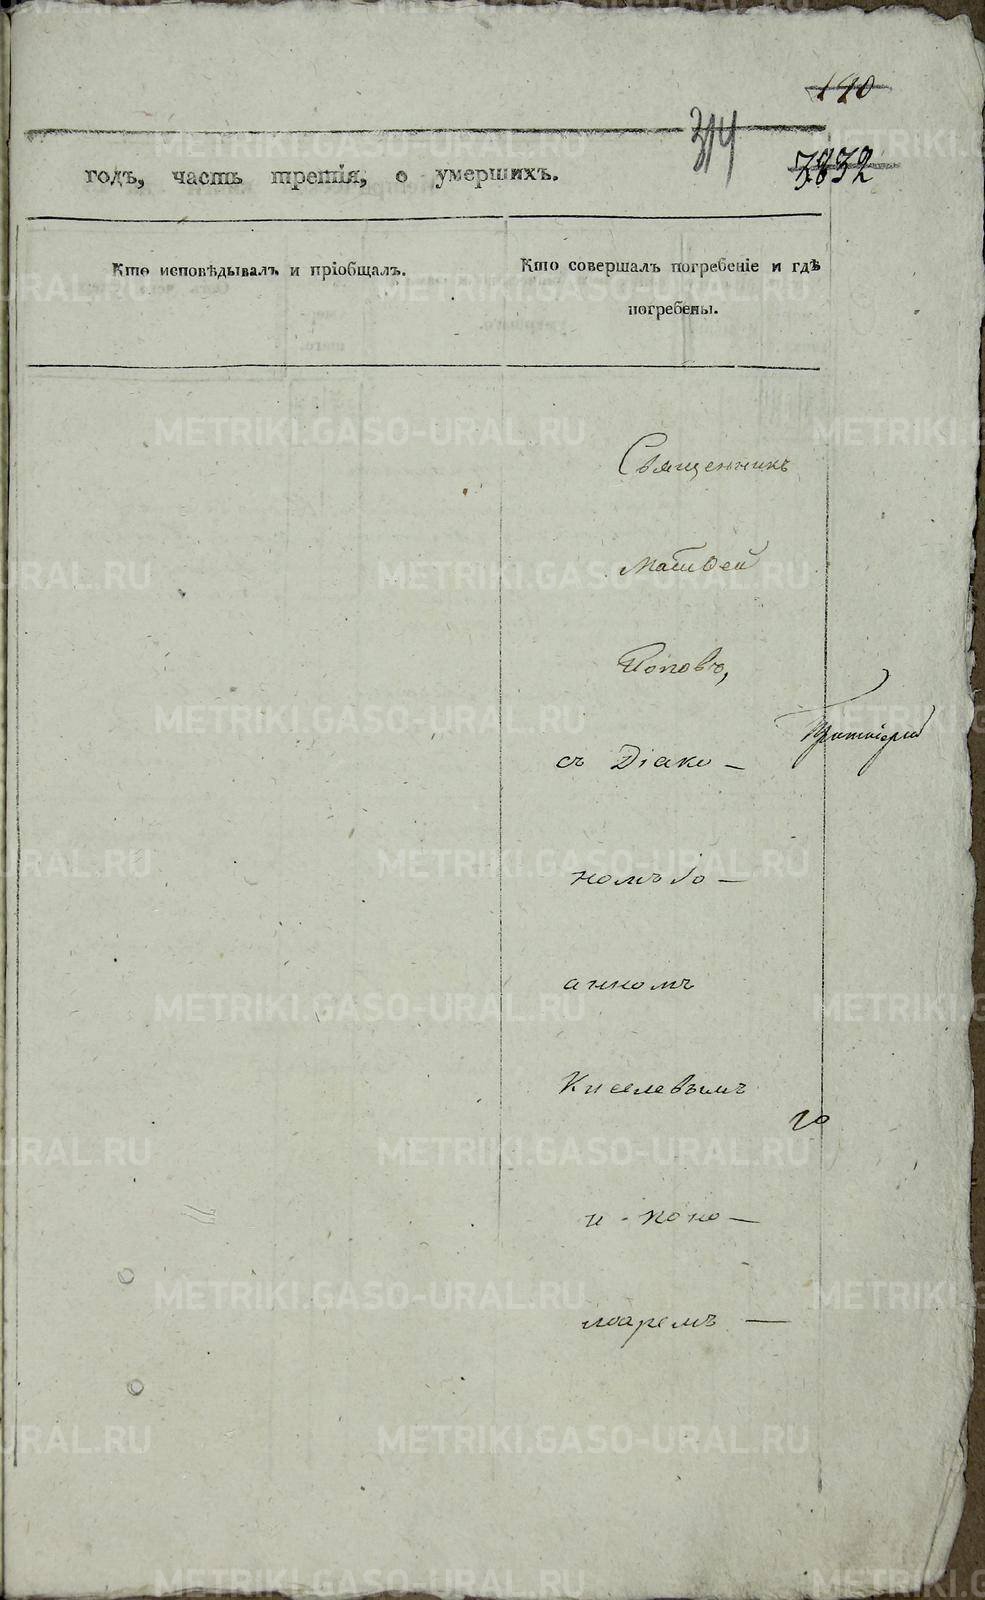 190
314
годъ, часть третія, о умершихъ.
Кто исповѣдывалъ и пріобщалъ.
Кто совершалъ погребеніе и гдѣ
погребены.
Священникъ
Матвей
Поповъ,
съ Діако-
номъ Іо-
анномъ
Киселевымъ
и поно-
маремъ —
METRIKI.GASO-URAL.RU